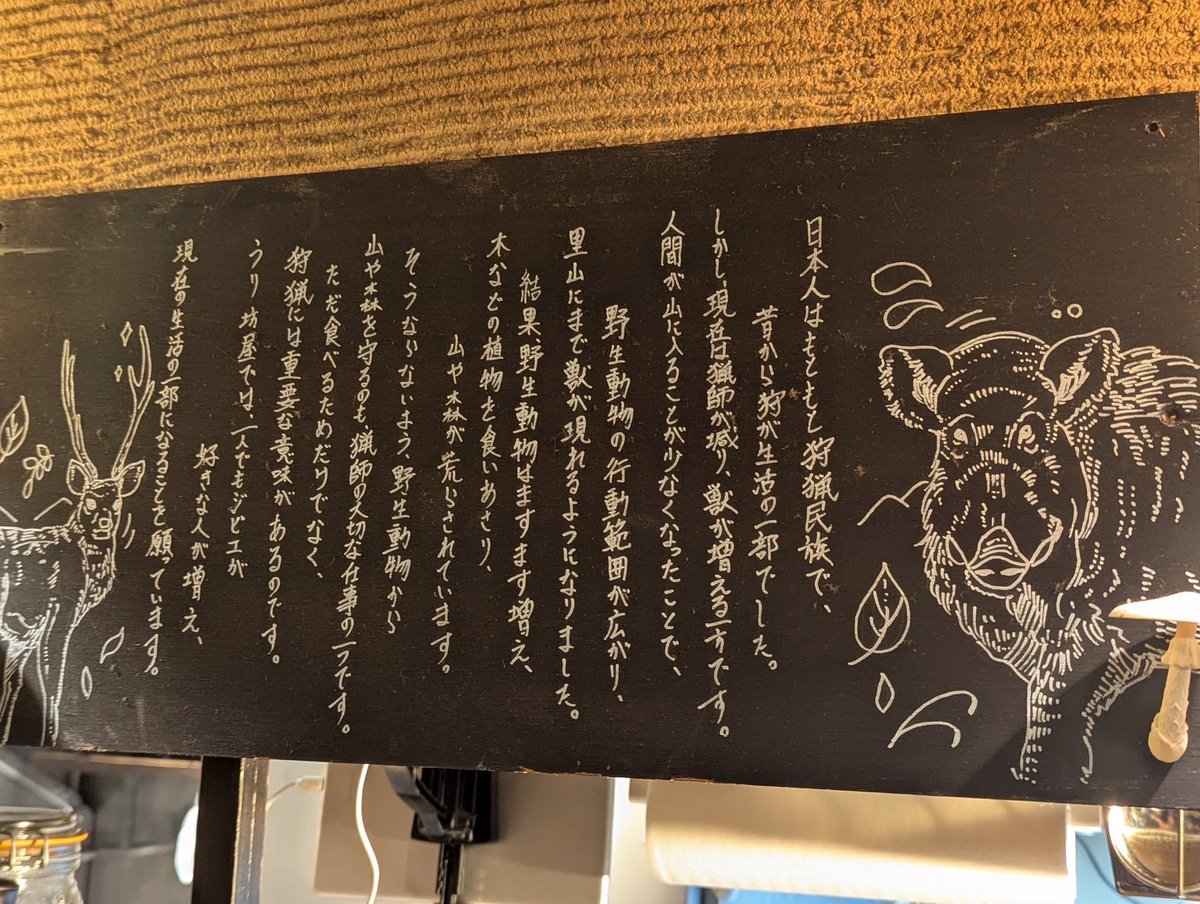 日本人はもともと狩猟民族で、
昔から狩が生活の一部でした。
しかし、現在は猟師が減り、獣が増える一方です。
人間が山に入ることが少なくなったことで、
野生動物の行動範囲が広がり、
里山にまで獣が現れるようになりました。
結果、野生動物はますます増え、
木などの植物を食いあさり、
山や森が荒らされています。
そうならないよう、野生動物から
山や森を守るのも猟師の大切な仕事の一つです。
ただ食べるためだけでなく、
狩猟には重要な意味があるのです。
うり坊屋では、一人でもジビエが
好きな人が増え、
現在の生活の一部になることを願っています。